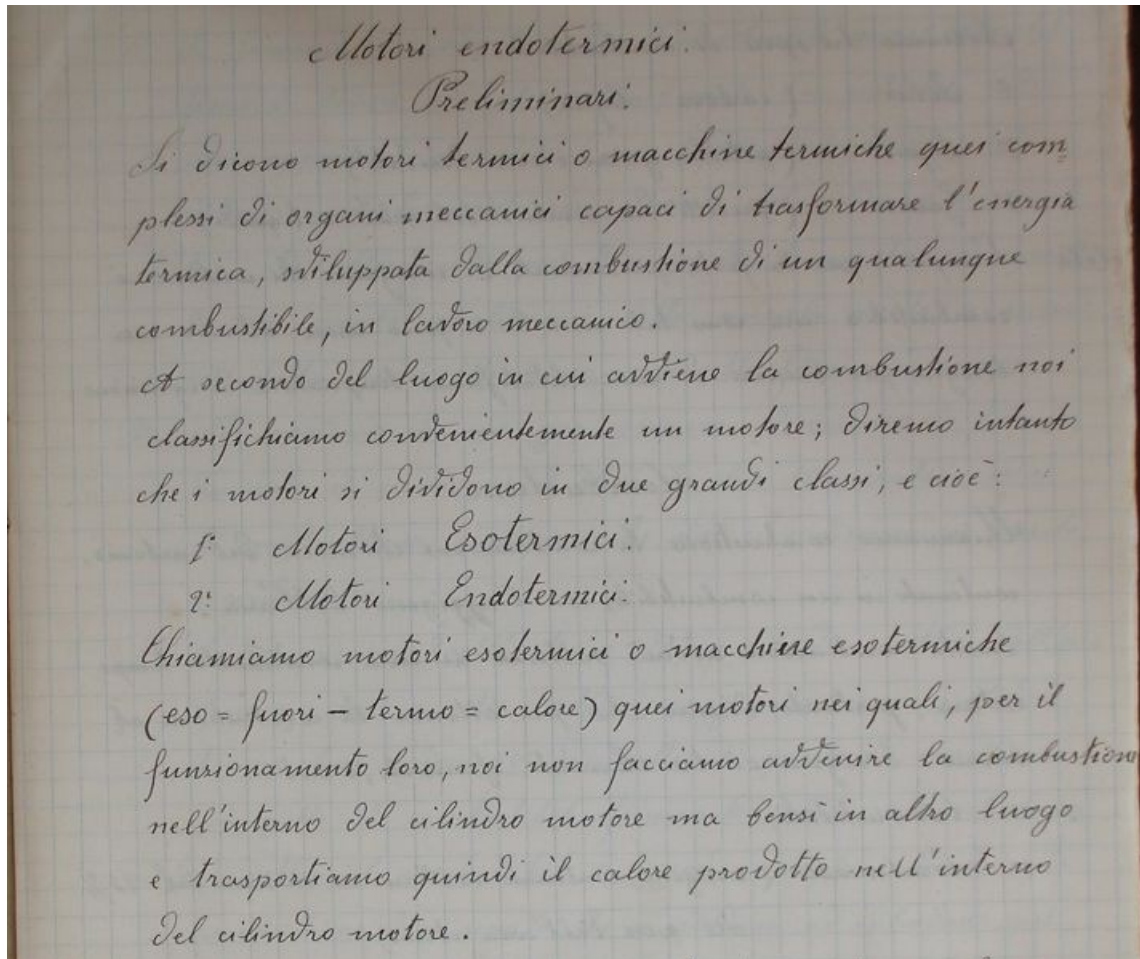 Motori endotermici.
Preliminari.
Si dicono motori termici o macchine termiche quei com=
plessi di organi meccanici capaci di trasformare l'energia
termica, sviluppata dalla combustione di un qualunque
combustibile, in lavoro meccanico.
A secondo del luogo in cui avviene la combustione noi
classifichiamo convenientemente un motore; diremo intanto
che i motori si dividono in due grandi classi, e cioè:
1º Motori Esotermici.
2º Motori Endotermici.
Chiamiamo motori esotermici o macchine esotermiche
(eso = fuori - termo = calore) quei motori nei quali, per il
funzionamento loro, noi non facciamo avvenire la combustione
nell'interno del cilindro motore ma bensì in altro luogo
e trasportiamo quindi il calore prodotto nell'interno
del cilindro motore.